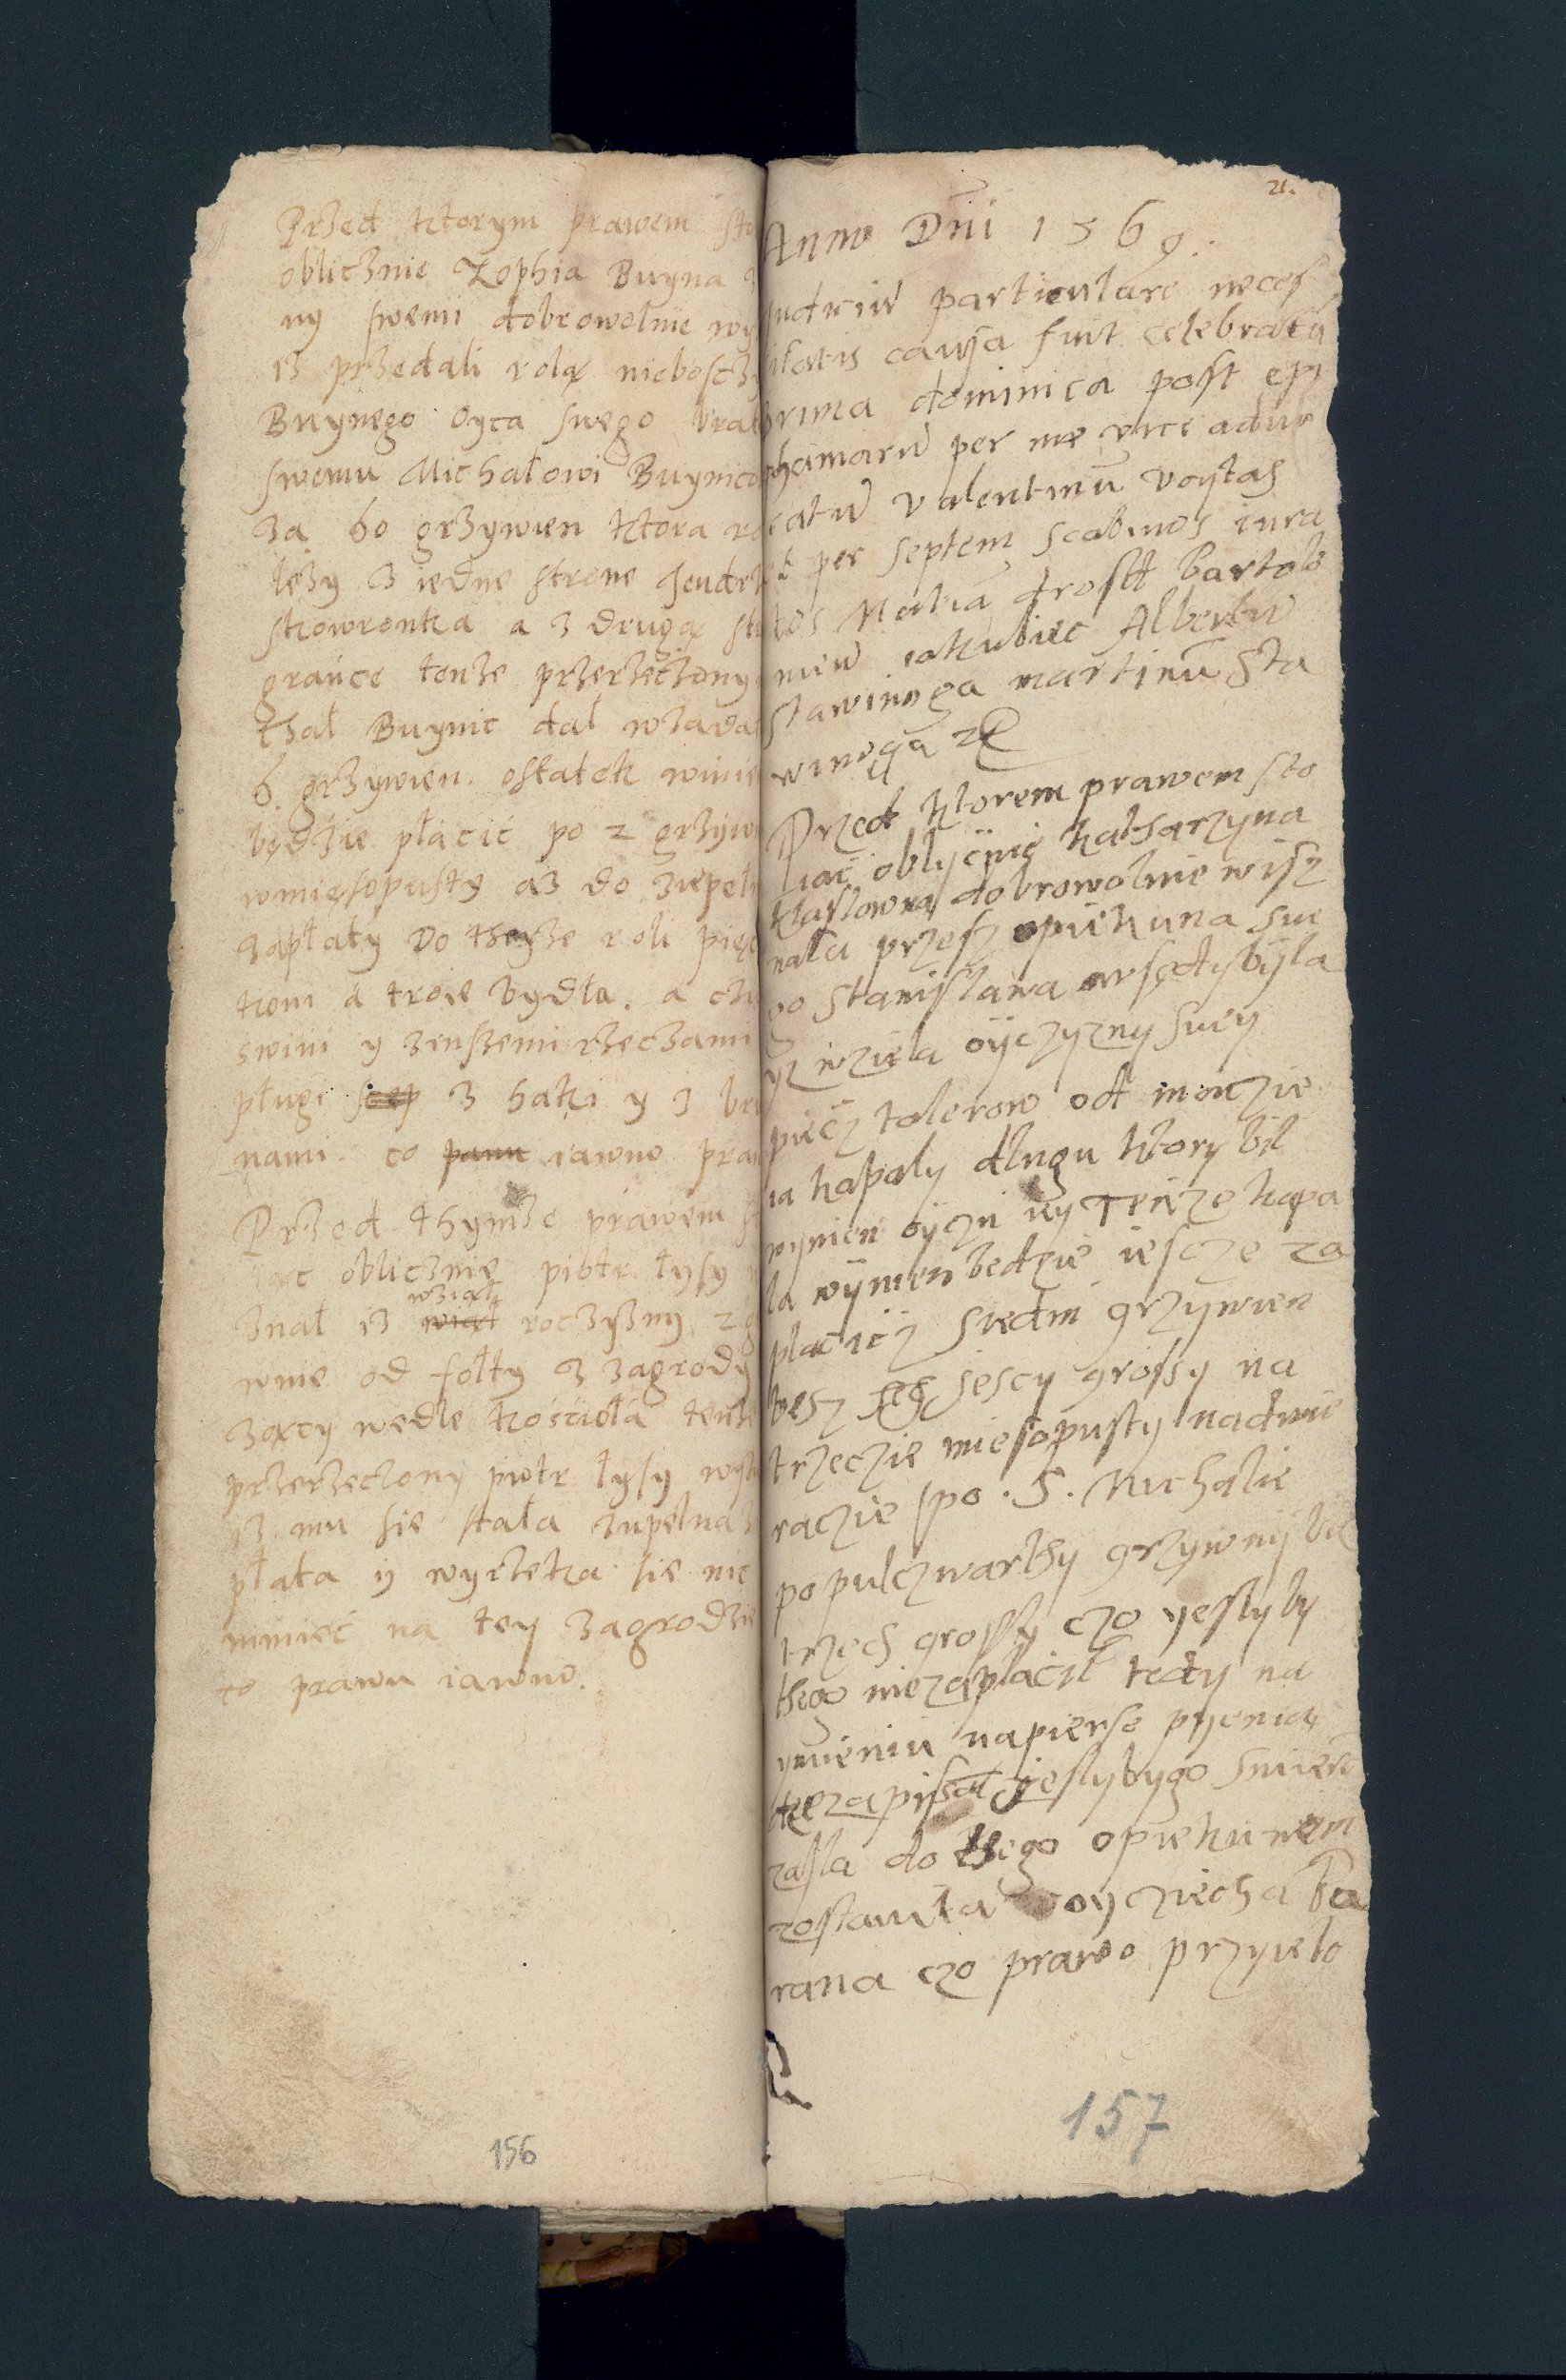 Przed ktorym prawem sto
oblicznie Zophia Buyna
ny swemi dobrowolnie wy
iz przedali rolą nieboscz
Buynego oyca swego brat
swemu Michałowi Buynico
za 60 grzywien ktora ro
leży z iedne strone Jendrz
skowronka a z drugą st
grańce tenże przerzeczony
chał Buynic dał wzada
6. grzywien. ostatek winie
będzie płacić po 2 grzyw
wmięsopusty aż do zupeln
zapłaty do theyże roli pięc
koni a troie bydła. a
swini y zenszemi rzeczami
pługi 3 haki y 3 br
nami. co panu iawno praw
Przed thymże prawem st
iac oblicznie piotr łysy
wziął
znał iż wiął roczyzny 2 g
wnie od fołty z zagrody
zący wedle kościoła tenże
przerzeczony piotr łysy wyz
iż mu sie stała zupełna z
płata y wyrzeka sie nic
mnieć na tey zagrodzie
to prawu iawno.
156
21.
Anno Dni 1569.
Judiciũ particulare neces
itatis causa fuit celebratũ
prima dominica post epi
phaniarũ per me vice advo
catũ valentinũ voytas
et per septem scabinos iura
tos Matiã drost Bartolo
meũ iakubiec Albertũ
stawinoga martinũ Sta
winoga
Przed ktorem prawem sto
iac oblycznie katharzyna
klaslowna dobrowolnie wisz
nala przesz opiekuna sue
go stanislawa
yz wziela oyczyzny suey
piecz talerow od
ia kapaly dlugu ktory bil
wynien oyczu yy Tenze kapa
la wymen bedzie iescze za
placicz siedm grzywien
besz sescy grossy na
trzeczie miesopusty nadwie
raczie po. S. Michalie
populczwarthy grzywny bes
trzech grossy czo yeslyby
thego niezaplacil tedy na
ymieniu napierse pyenią
dze zapisal jeslybygo smierc
zasla do thego opiekunem
zostawila voycziecha Ba
rana czo prawo przyielo
157